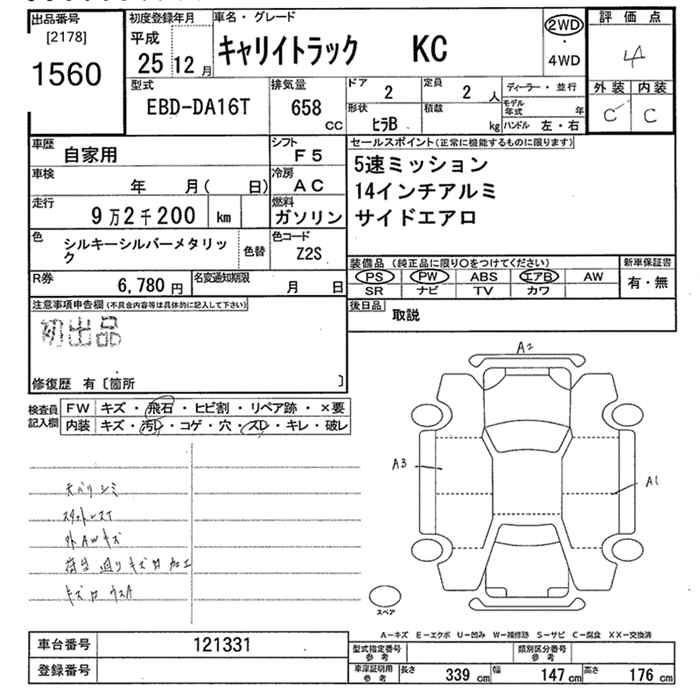 出品番号
[2178]
1560
初度登録年月
平成
25 12 月
車名・グレード
キャリイトラック KC
2WD
・
4WD
評価点
4
外装 内装
C C
型式
EBD-DA16T
排気量
658
CC
ドア
2
定員
2 人
形状
ヒラB
積載
kg
ディーラー・並行
モデル年式 年
ハンドル 左・右
車歴
自家用
シフト
F5
車検
年 月( 日)
冷房
AC
走行
9万2千200 km
燃料
ガソリン
色
シルキーシルバーメタリック
色替
色コード
Z2S
R券
6,780 円
名変通知期限
月 日
セールスポイント(正常に機能するものに限ります)
5速ミッション
14インチアルミ
サイドエアロ
装備品 (純正品に限り○をつけてください)
PS PW ABS エアB AW
SR ナビ TV カワ
新車保証書
有・無
後日品
取説
注意事項申告欄(不具合内容等は具体的に記入して下さい)
初出品
修復歴 有〔箇所 〕
検査員
記入欄
FW キズ・飛石・ヒビ割・リペア跡・×要
内装 キズ・汚レ・コゲ・穴・スレ・キレ・破レ
A2
A3
A1
スペア
A―キズ E―エクボ U―凹み W―補修跡 S―サビ C―腐食 XX―交換済
車台番号 121331
登録番号
型式指定番号
参考
類別区分番号
参考
車庫証明用
参考
長さ 339 cm 幅 147 cm 高さ 176 cm